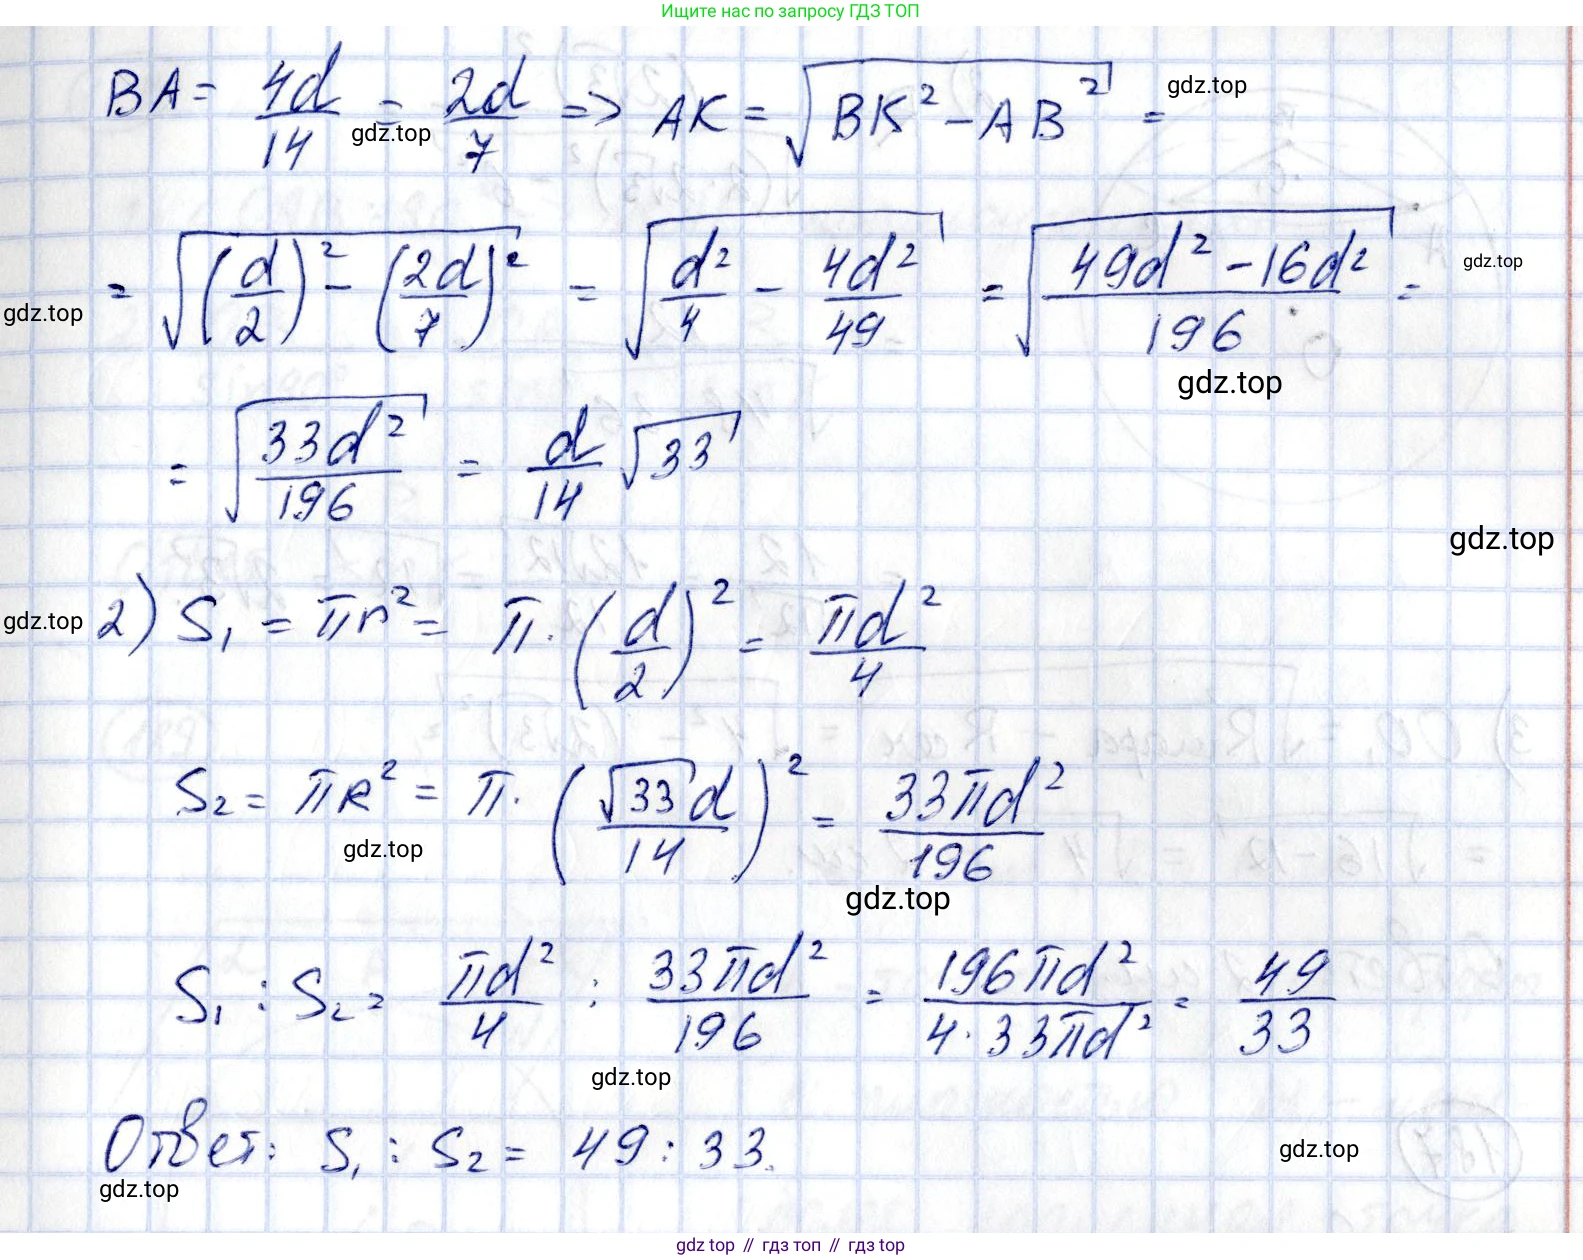 Ищите нас по запросу ГДЗ ТОП
BA = 4d/14 = 2d/7 => AK = √(BK² - AB²) =
gdz.top
gdz.top
= √((d/2)² - (2d/7)²) = √(d²/4 - 4d²/49) = √((49d² - 16d²)/196) =
gdz.top
gdz.top
gdz.top
= √(33d²/196) = d/14 √33
gdz.top
2) S₁ = πr² = π · (d/2)² = πd²/4
gdz.top
S₂ = πR² = π · (√33d/14)² = 33πd²/196
gdz.top
gdz.top
S₁ : S₂ = πd²/4 : 33πd²/196 = 196πd²/(4 · 33πd²) = 49/33
gdz.top
Ответ: S₁ : S₂ = 49 : 33.
gdz.top
gdz.top
gdz top // гдз топ // gdz top